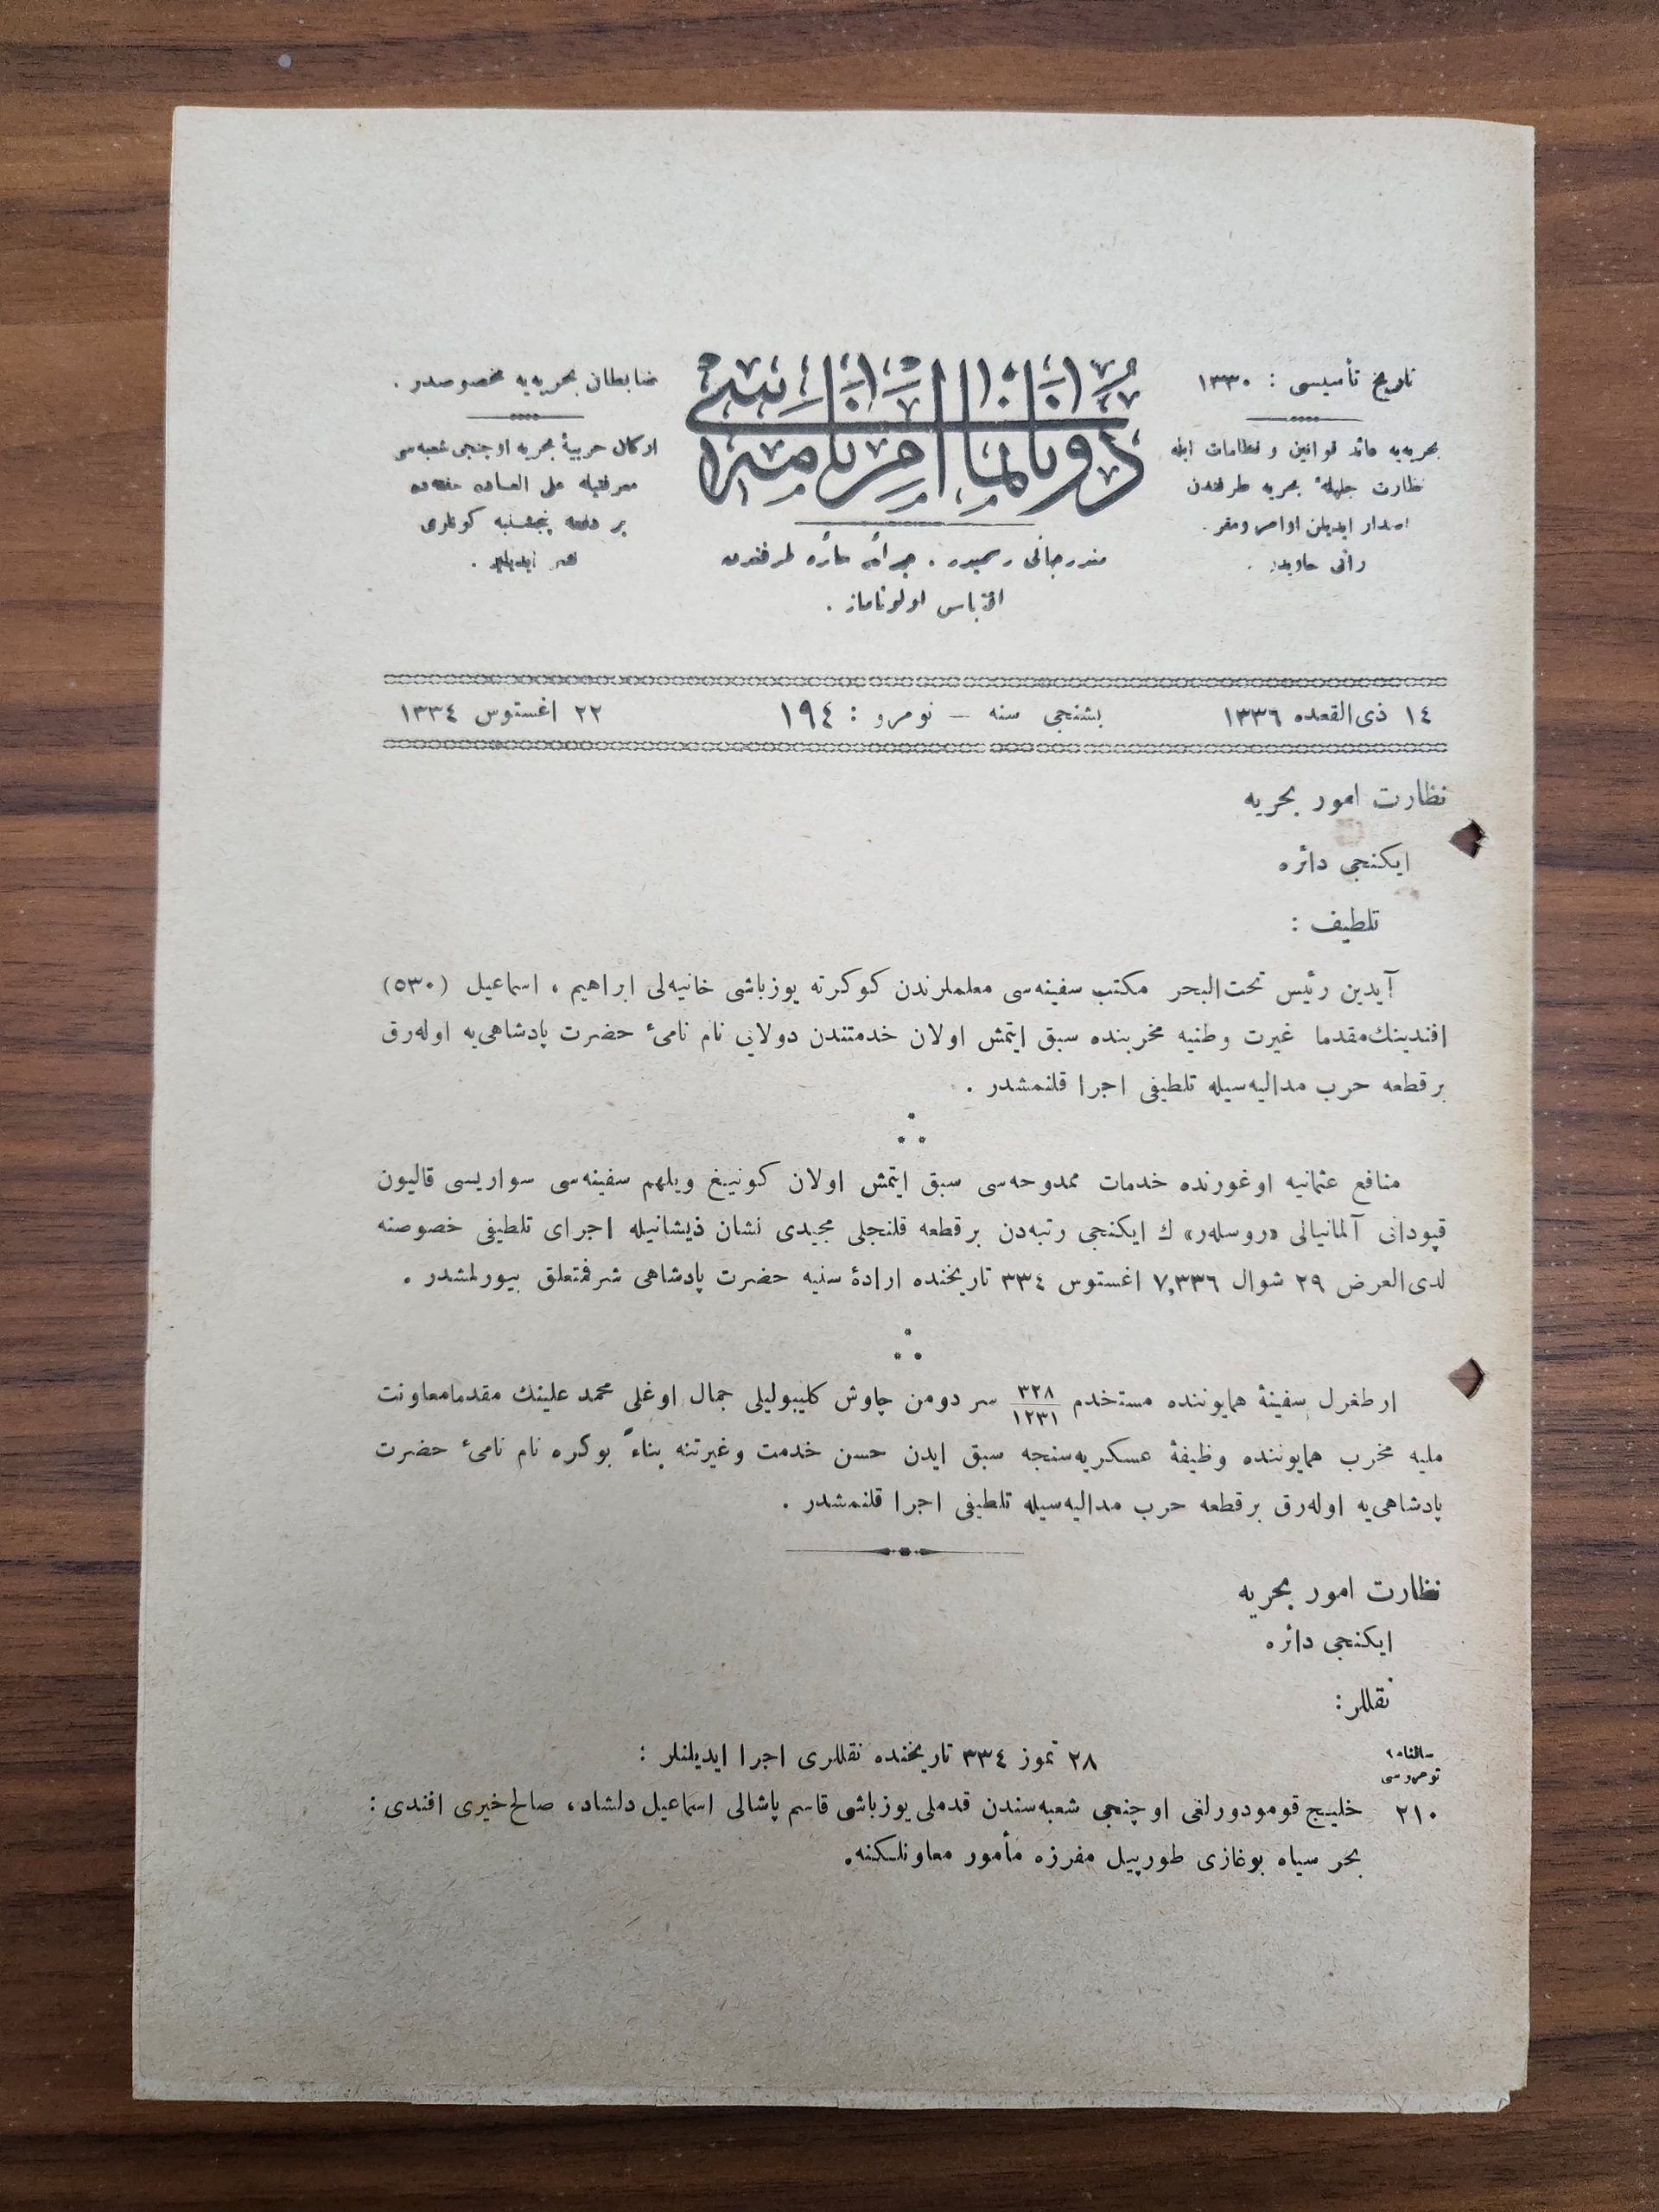 تاریخ تأسیسی : ١٣٣٠
بحریه‌یه عائد قوانین و نظامات ایله
نظارت جلیلهٔ بحریه طرفندن
اصدار ایدیلن اوامر ومقر .
راتی حاویدر .
دونانما امرنامه‌سی
مندرجاتی رسمیدر . جرائد سائره طرفندن
اقتباس اولوناماز .
ضابطان بحریه‌یه مخصوصدر .
ارکان حربیهٔ بحریه اوچنجی شعبه‌سی
معرفتیله علی العاده هفته‌ده
بر دفعه پنجشنبه کونلری
نشر ایدیلیر .
١٤ ذی‌القعده ١٣٣٦
بشنجی سنه — نومرو : ١٩٤
٢٢ اغستوس ١٣٣٤
نظارت امور بحریه
ایکنجی دائره
تلطیف :
آیدین رئیس تحت‌البحر مکتب سفینه‌سی معلملرندن کوکرته یوزباشی خانیه‌لی ابراهیم ، اسماعیل (٥٣٠)
افندینك‌مقدما غیرت وطنیه مخربنده سبق ایتمش اولان خدمتندن دولایی نام نامیٔ حضرت پادشاهی‌یه اوله‌رق
برقطعه حرب مدالیه‌سیله تلطیفی اجرا قلنمشدر .
منافع عثمانیه اوغورنده خدمات ممدوحه‌سی سبق ایتمش اولان کونیغ ویلهم سفینه‌سی سواریسی قالیون
قپودانی آلمانیالی «روسله‌ر» ك ایکنجی رتبه‌دن برقطعه قلنجلی مجیدی نشان ذیشانیله اجرای تلطیفی خصوصنه
لدی‌العرض ٢٩ شوال ٧,٣٣٦ اغستوس ٣٣٤ تاریخنده ارادهٔ سنیه حضرت پادشاهی شرفمتعلق بیورلمشدر .
ارطغرل سفینهٔ همایوننده مستخدم ٣٢٨/١٢٣١ سر دومن چاوش کلیبولیلی جمال اوغلی محمد علینك مقدمامعاونت
ملیه مخرب همایوننده وظیفهٔ عسکریه‌سنجه سبق ایدن حسن خدمت وغیرتنه بناءً بوکره نام نامیٔ حضرت
پادشاهی‌یه اوله‌رق برقطعه حرب مدالیه‌سیله تلطیفی اجرا قلنمشدر .
نظارت امور بحریه
ایکنجی دائره
نقللر :
٢٨ تموز ٣٣٤ تاریخنده نقللری اجرا ایدیلنلر :
سالنامه
نومروسی
٢١٠ خلیج قومودورلغی اوچنجی شعبه‌سندن قدملی یوزباشی قاسم پاشالی اسماعیل دلشاد، صالح‌خیری افندی :
بحر سیاه بوغازی طورپیل مفرزه مأمور معاونلكنه.